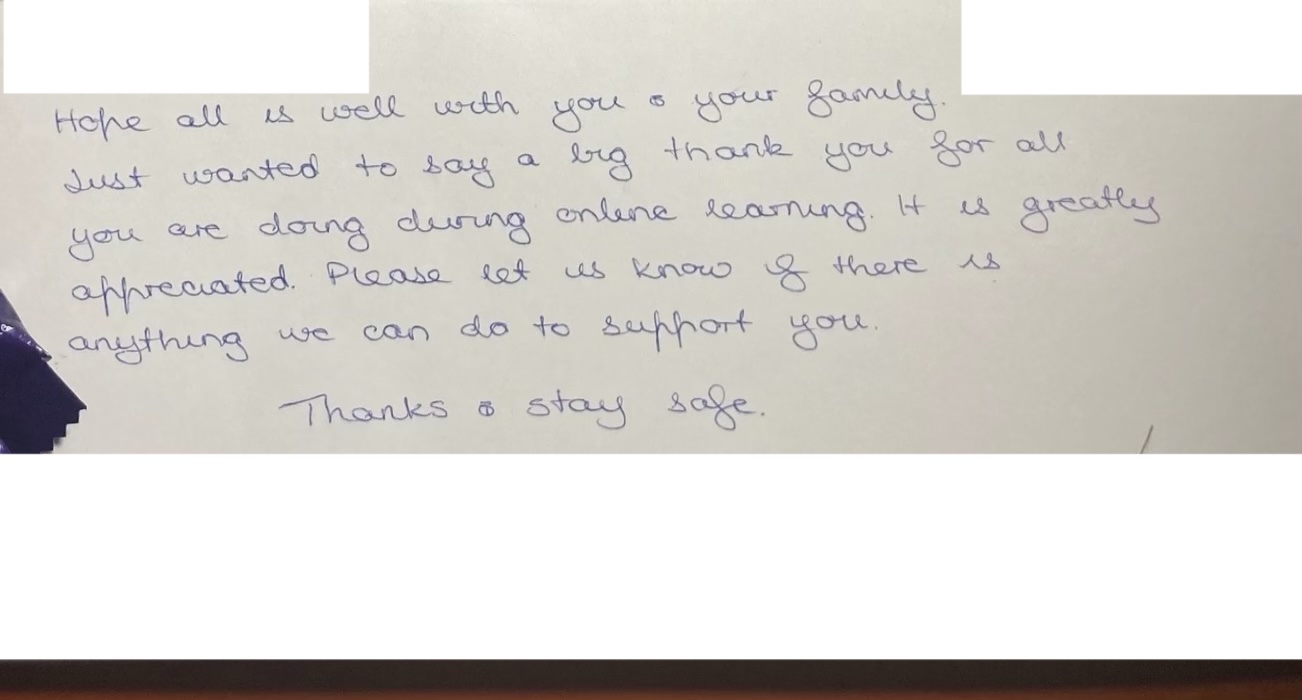 Hope all is well with you & your family.
Just wanted to say a big thank you for all
you are doing during online learning. It is greatly
appreciated. Please let us know if there is
anything we can do to support you.
Thanks & stay safe.